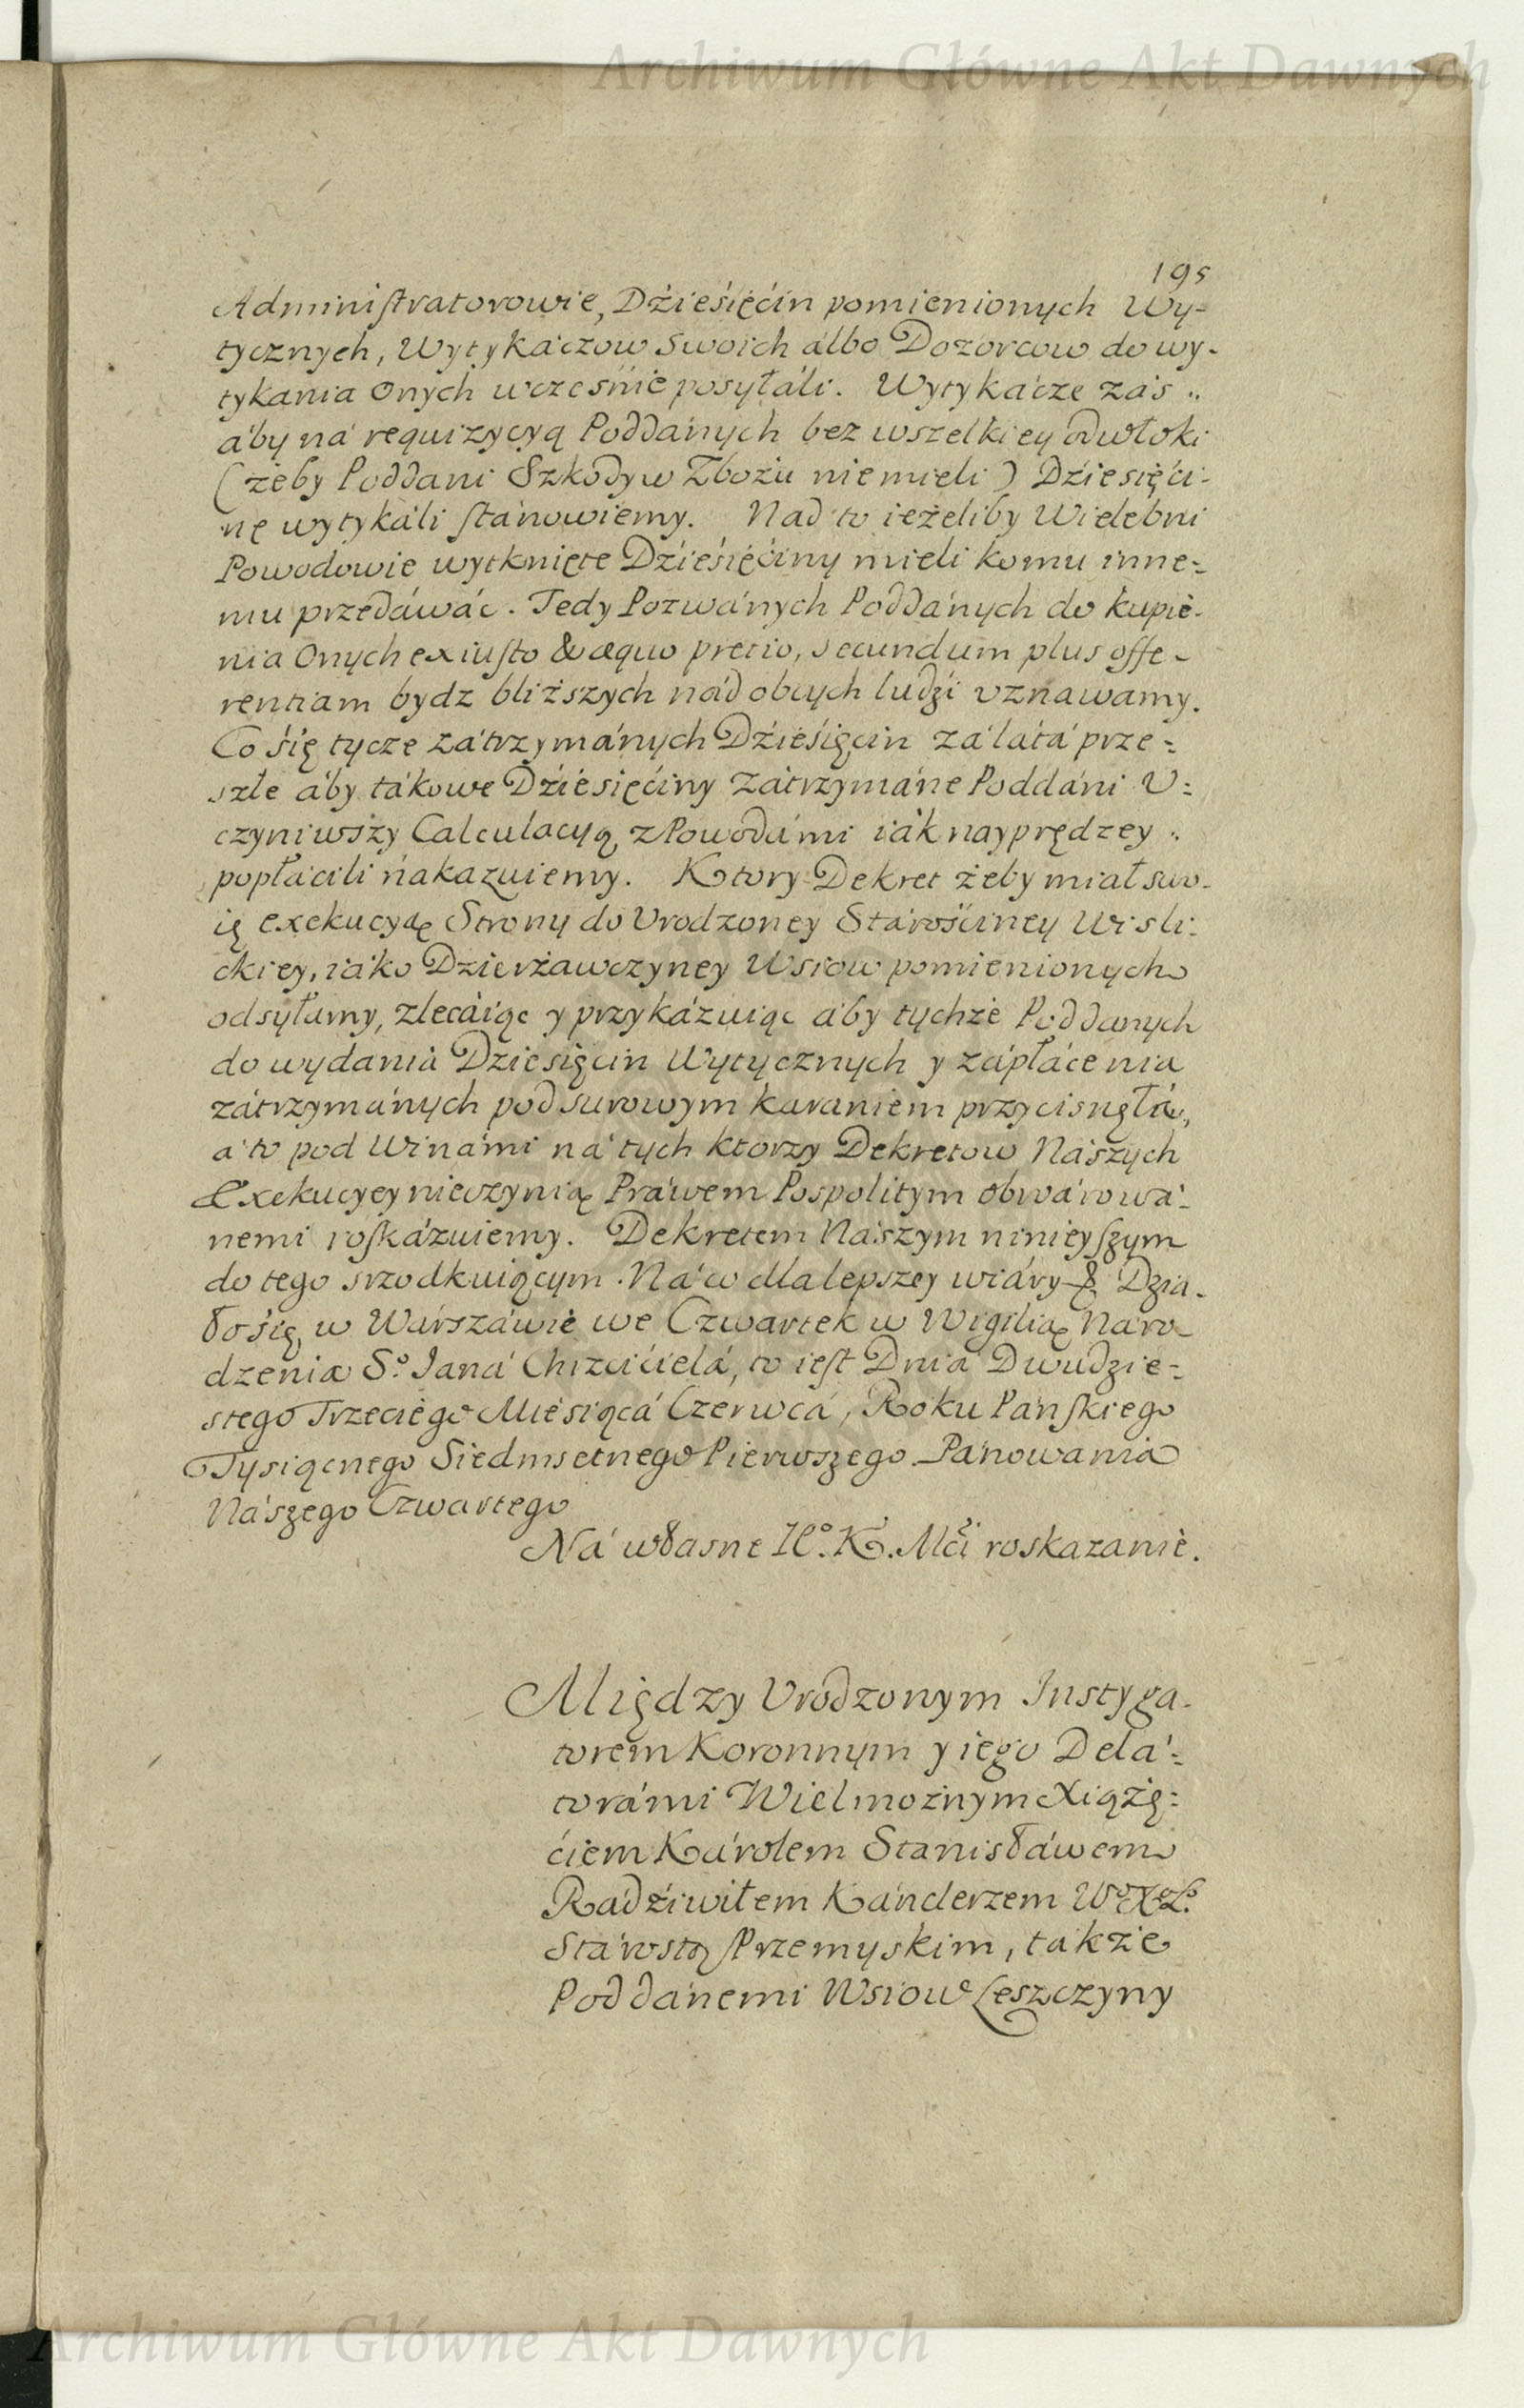 Archiwum Główne Akt Dawnych
195
Administratorowie, Dźieśięćin pomienionych Wy-
tycznych, Wytykáczow swoich álbo Dozorcow do wy-
tykania Onych wcześnie posyłáli. Wytykácze záś
áby ná requizycyą Poddánych bez wszelkiey odwłoki
(żeby Poddani Szkody w Zbożu niemieli) Dźiesięći-
nę wytykáli stánowiemy. Nad to ieżeliby Wielebni
Powodowie wytknięte Dźieśięćiny mieli komu inne-
mu przedáwáć. Tedy Pozwánych Poddánych do kupie-
nia Onych ex iusto & æquo precio, secundum plus offe-
rentiam bydz bliższych nád obcych ludźi uznawamy.
Co śię tycze zátrzymánych Dźieśięcin zá látá prze=
szłe áby tákowe Dźiesięćiny zátrzymáne Poddáni U=
czyniwszy Calculacyą z Powodámi iák nayprędzey
popłácili nakazuiemy. Ktory Dekret żeby miał swo-
ię exekucyą Strony do Urodzoney Stárośćiney Wisli-
ckiey, iáko Dzierżawczyney Wsiow pomienionych
odsyłamy, zlecáiąc y przykázuiąc áby tychże Poddanych
do wydania Dziesięcin Wytycznych y zápłácenia
zátrzymánych pod surowym karaniem przycisnęłá,
á to pod Winámi ná tych ktorzy Dekretow Nászych
Exekucyey nieczynią Práwem Pospolitym obwárowá-
nemi roskázuiemy. Dekretem Nászym ninieyszym
do tego srzodkuiącym. Ná co dla lepszey wiáry & Dzia-
ło śię w Wárszáwie we Czwartek w Wigilią Náro-
dzenia So. Janá Chrzcićielá, to iest Dnia Dwudzie-
stego Trzeciego Miesiącá Czerwcá, Roku Páńskiego
Tysiącnego Siedmsetnego Pierwszego Pánowania
Nászego Czwartego
Ná własne JKo. K. Mći roskazanie.
Między Urodzonym Instyga-
torem Koronnym y iego Delá-
torámi Wielmożnym Xiążę=
ćiem Károlem Stanisłáwem
Radźiwiłem Kánclerzem Wo. Xo. Lo.
Stárostą Przemyskim, także
Poddánemi Wsiow Leszczyny
Archiwum Główne Akt Dawnych